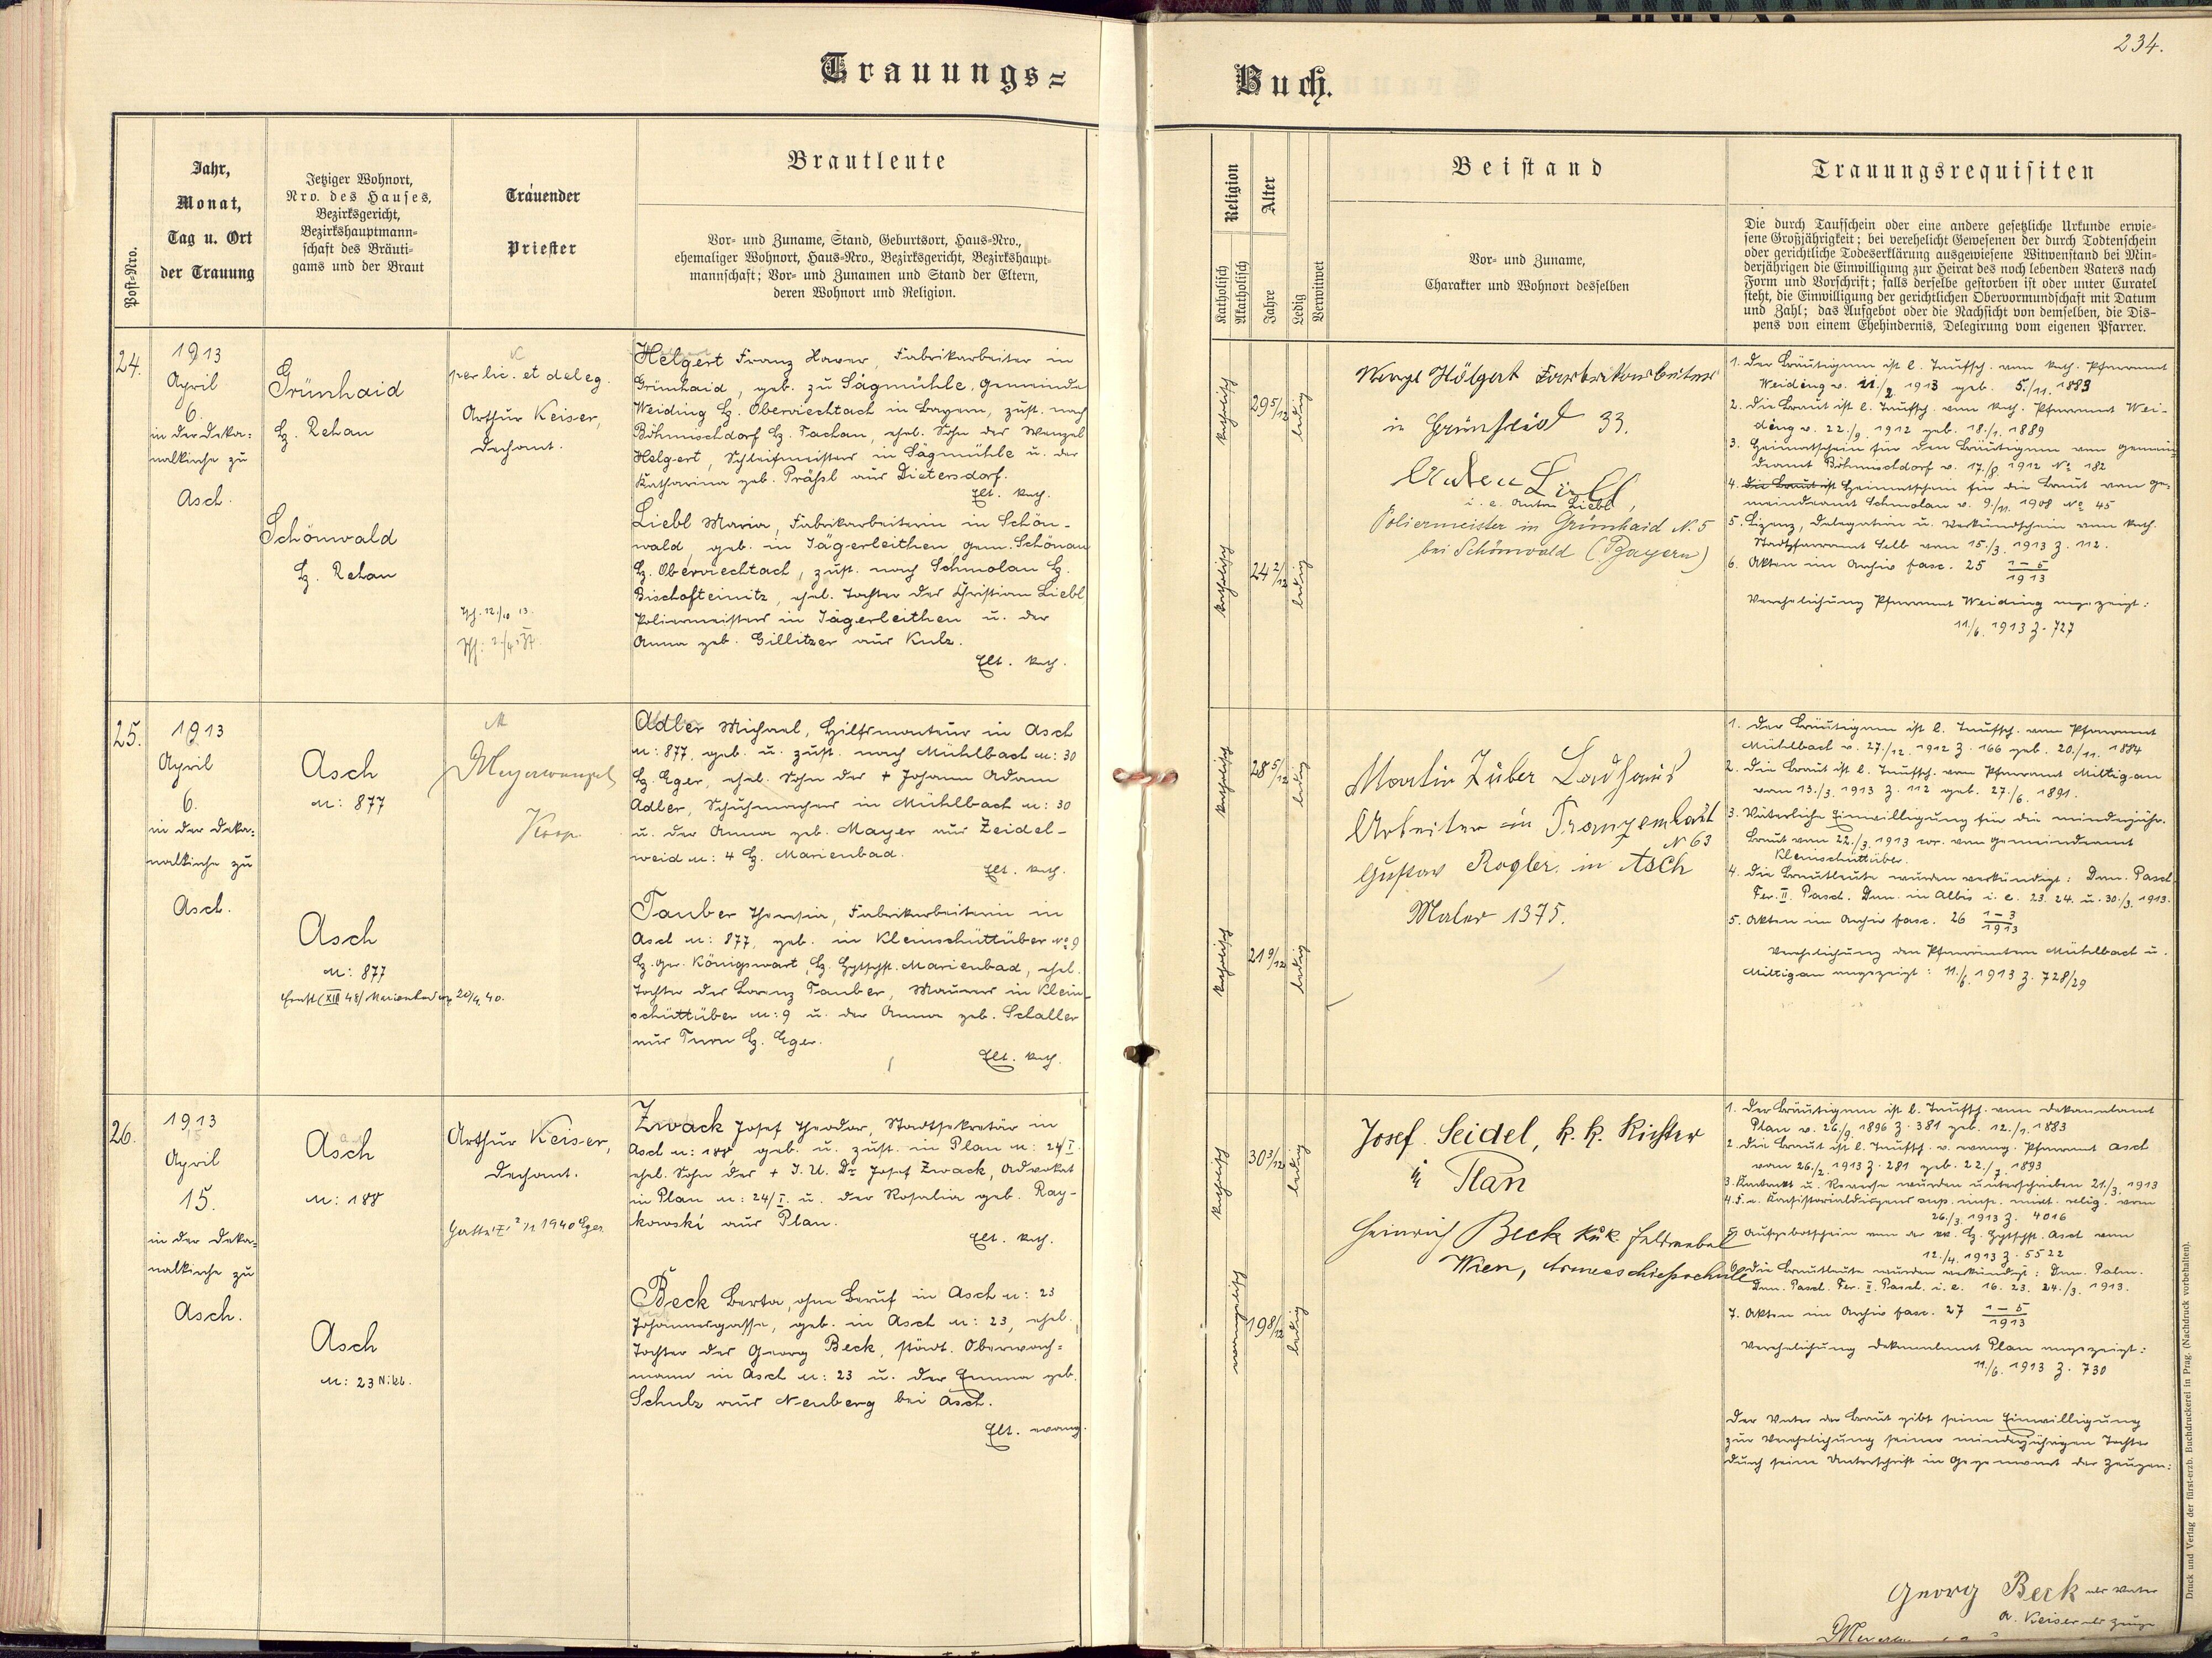 234.
Trauungs=
Buch.
Post-Nro.
Jahr,
Monat,
Tag u. Ort
der Trauung
Jetziger Wohnort,
Nro. des Hauses,
Bezirksgericht,
Bezirkshauptmann-
schaft des Bräuti-
gams und der Braut
Trauender
Priester
Brautleute
Vor- und Zuname, Stand, Geburtsort, Haus-Nro.,
ehemaliger Wohnort, Haus-Nro., Bezirksgericht, Bezirkshaupt-
mannschaft; Vor- und Zunamen und Stand der Eltern,
deren Wohnort und Religion.
Religion
Katholisch
Akatholisch
Alter
Jahre
Ledig
Verwitwet
Beistand
Vor- und Zuname,
Charakter und Wohnort desselben
Trauungsrequisiten
Die durch Taufschein oder eine andere gesetzliche Urkunde erwie-
sene Großjährigkeit; bei verehelicht Gewesenen der durch Todtenschein
oder gerichtliche Todeserklärung ausgewiesene Witwenstand bei Min-
derjährigen die Einwilligung zur Heirat des noch lebenden Vaters nach
Form und Vorschrift; falls derselbe gestorben ist oder unter Curatel
steht, die Einwilligung der gerichtlichen Obervormundschaft mit Datum
und Zahl; das Aufgebot oder die Nachsicht von demselben, die Dis-
pens von einem Ehehindernis, Delegirung vom eigenen Pfarrer.
24.
1913
April
6.
in der Deka=
nalkirche zu
Asch.
Grünhaid
Bz. Rehau
Schönwald
Bz. Rehau
per lic. et deleg.
Arthur Keiser,
Dechant.
Helgert Franz Xaver, Fabrikarbeiter in
Grünhaid, geb. zu Sägmühle, Gemeinde
Weiding Bz. Oberviechtach in Bayern, zust. nach
Böhmischdorf Bz. Tachau, ehel. Sohn des Wenzel
Helgert, Schleifmeisters in Sägmühle u. der
Katharina geb. Prässl aus Dietersdorf.
Elt. kath.
Liebl Maria, Fabrikarbeiterin in Schön-
wald, geb. in Jägerleithen, Gem. Schönau
Bz. Oberviechtach, zust. nach Schmolau Bz.
Bischofteinitz, ehel. Tochter des Christian Liebl
Poliermeisters in Jägerleithen u. der
Anna geb. Gillitzer aus Kulz.
Elt. kath.
katholisch
29 5/12
ledig
katholisch
24 2/12
ledig
Wenzl Hölgert Farbrikarbeiter
in Grünheid 33.
Anton Liebl
i. e. Anton Liebl,
Poliermeister in Grünhaid N. 5
bei Schönwald (Bayern)
1. Der Bräutigam ist l. Taufsch. vom kath. Pfarramt
Weiding v. 11./2. 1913 geb. 5./11. 1883
2. Die Braut ist l. Taufsch. vom kath. Pfarramt Wei-
ding v. 22./9. 1912 geb. 18./1. 1889
3. Heimatschein für den Bräutigam vom Gemein-
deamt Böhmischdorf v. 17./8. 1912 No 182
4. Die Braut ist Heimatschein für die Braut vom Ge-
meindeamt Schmolau v. 9./11. 1908 No 45
5. Lizenz, Delegation u. Verkündschein vom kath.
Stadtpfarramt Selb vom 15./3. 1913 Z. 112.
6. Akten im Archiv fasc. 25 1-5/1913
Verehelichung Pfarramt Weiding angezeigt:
11./6. 1913 Z. 727
25.
1913
April
6.
in der Deka=
nalkirche zu
Asch.
Asch
N: 877
Asch
N: 877
Meyerwenzel
Koop.
Adler Michael, Hilfsmonteur in Asch
N: 877, geb. u. zust. nach Mühlbach N: 30
Bz. Eger, ehel. Sohn des + Johann Adam
Adler, Schuhmachers in Mühlbach N: 30
u. der Anna geb. Mayer aus Zeidel-
weid N: 4 Bz. Marienbad.
Elt. kath.
Tauber Theresia, Fabrikarbeiterin in
Asch N: 877, geb. in Kleinschüttüber No 9
Bz. Ger. Königswart, Bz. Hptsch. Marienbad, ehel.
Tochter des Lorenz Tauber, Maurers in Klein-
schüttüber N: 9 u. der Anna geb. Schaller
aus Turn Bz. Eger.
Elt. kath.
katholisch
28 5/12
ledig
katholisch
21 9/12
ledig
Martin Zuber Ladhaus
Arbeiter in Franzensbad
N 63
Gustav Rogler in Asch
Maler 1375.
1. Der Bräutigam ist l. Taufsch. vom Pfarramt
Mühlbach v. 27./12. 1912 Z. 166 geb. 20./11. 1884
2. Die Braut ist l. Taufsch. vom Pfarramt Miltigau
vom 13./3. 1913 Z. 112 geb. 27./6. 1891.
3. Väterliche Einwilligung für die minderjähr.
Braut vom 22./3. 1913 cor. vom Gemeindeamt
Kleinschüttüber.
4. Die Brautleute wurden verkündigt: Dom. Pasch.
Fer. II Pasch. Dom. in Albis i. e. 23. 24. u. 30./3. 1913.
5. Akten im Archiv fasc. 26 1-3/1913
Verehelichung den Pfarrämtern Mühlbach u.
Miltigau angezeigt: 11./6. 1913 Z. 728/29
26.
1913
April
15.
in der Deka=
nalkirche zu
Asch.
Asch
N: 188
Asch
N: 23 Nikl.
Arthur Keiser,
Dechant.
Zwack Josef Theodor, Stadtsekretär in
Asch N: 188, geb. u. zust. in Plan N: 24/I
ehel. Sohn des + J. U. Dr Josef Zwack, Advokat
in Plan N: 24/I. u. der Rosalia geb. Ray-
kowski aus Plan.
Elt. kath.
Beck Berta, ohne Beruf in Asch N: 23
Johannesgasse, geb. in Asch N: 23, ehel.
Tochter des Georg Beck, städt. Oberwach=
mann in Asch N: 23 u. der Emma geb.
Schulz aus Neuberg bei Asch.
Elt. evang.
katholisch
30 3/12
ledig
evangelisch
19 8/12
ledig
Josef Seidel, k. k. Richter
in Plan
Heinrich Beck k.u.k. Feldwebel
Wien, Armeeschiesschule
1. Der Bräutigam ist l. Taufsch. vom Dekanalamt
Plan v. 26./9. 1896 Z. 381 geb. 12./1. 1883
2. Die Braut ist l. Taufsch. v. evang. Pfarramt Asch
vom 26./2. 1913 Z. 281 geb. 22./7. 1893
3. Kontrakt u. Reverse wurden unterschrieben 21./3. 1913
26./3. 1913 Z. 4016
12./4. 1913 Z. 5522
6. Die Brautleute wurden verkündigt: Dom. Palm.
Dom. Pasch. Fer. II Pasch. i. e. 16. 23. 24./3. 1913.
7. Akten im Archiv fasc. 27 1-5/1913
Verehelichung Dekanalamt Plan angezeigt:
11./6. 1913 Z. 730
Der Vater der Braut gibt seine Einwilligung
zur Verehelichung seiner minderjährigen Tochter
durch seine Unterschrift in Gegenwart der Zeugen:
Georg Beck als Vater
A. Keiser als Zeuge
Druck und Verlag der fürst-erzb. Buchdruckerei in Prag. (Nachdruck vorbehalten).